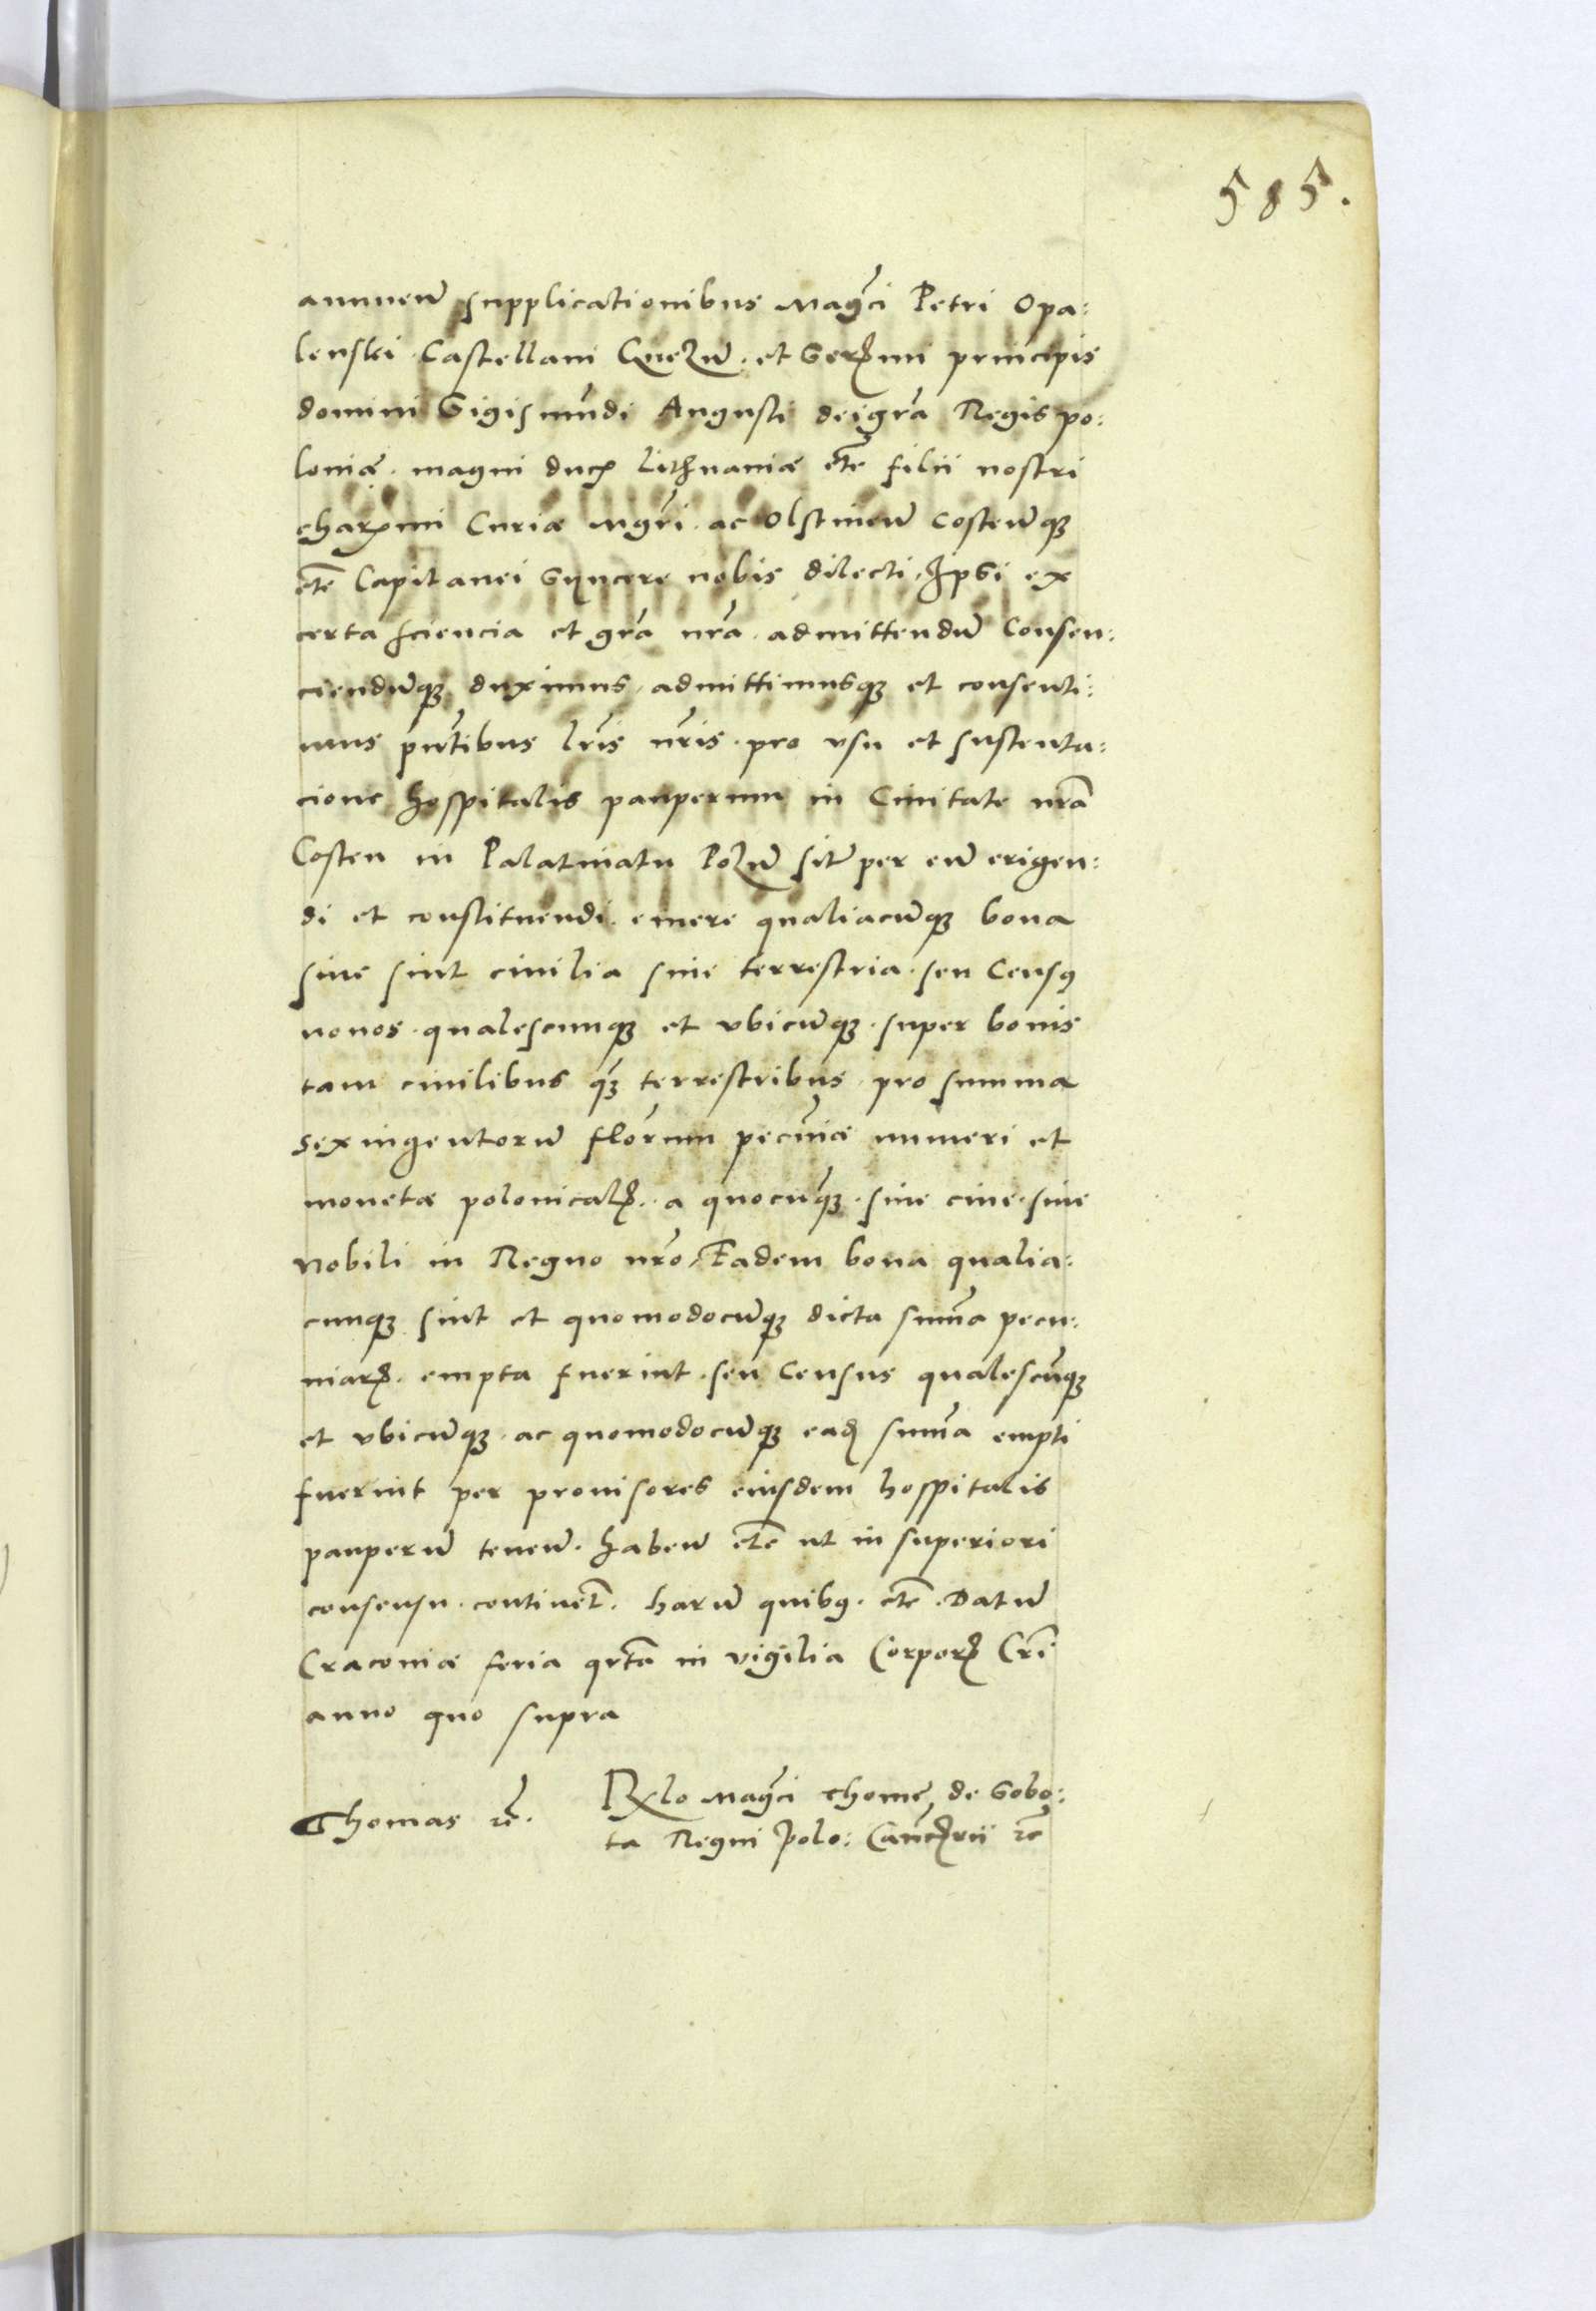 585.
annuen̄ supplicationibus Magc̄i Petri Opa:
lenski Castellani Gnezn̄. et Serᵐi principis
domini Sigismūdi Augusti dei gr̄a Regis po:
loniæ. magni ducꝭ Lithuaniæ etc̄ filii nostri
charᵐi Curiæ Mgr̄i. ac Olstinen̄ Costen̄qꝫ
etc̄ Capitanei Syncere nobis dilecti, Ipsi ex
certa sciencia et gr̄a nr̄a. admittendū Consen:
ciendūqꝫ duximus, admittimusqꝫ et consenti:
mus pn̄tibus lr̄is nr̄is. pro vsu et sustenta:
cione hospitalis pauperum in Ciuitate nr̄a
Costen in Palatinatu Pozn̄ sit̄ per eū erigen:
di et constituendi. emere qualiacūqꝫ bona
siue sint ciuilia siue terrestria. seu Censꝰ
nouos. qualescunqꝫ et vbicūqꝫ. super bonis
tam ciuilibus qꝫ terrestribus, pro summa
sexingentorū flor̄num pecūiæ numeri et
monetæ polonicalꝭ. a quocūqꝫ. siue ciue. siue
Nobili in Regno nr̄o, Eadem bona qualia:
cunqꝫ sint et quomodocūqꝫ dicta sum̄a pecu:
niarꝫ. empta fuerint. seu Census qualescūqꝫ
et vbicūqꝫ. ac quomodocūqꝫ eadꝫ sum̄a empti
fuerint per prouisores eiusdem hospitalis
pauperū tenen̄. haben̄ etc̄ ut in superiori
consensu. continet̄. harū quibꝰ. etc̄. Datū
Cracouiæ feria qrt̄a in vigilia Corporꝭ Cr̄i
anno quo supra
Thomas rc̄.
Rlo Magc̄i Thomę de Sobo:
ta Regni Polo: Canc̄rii rc̄